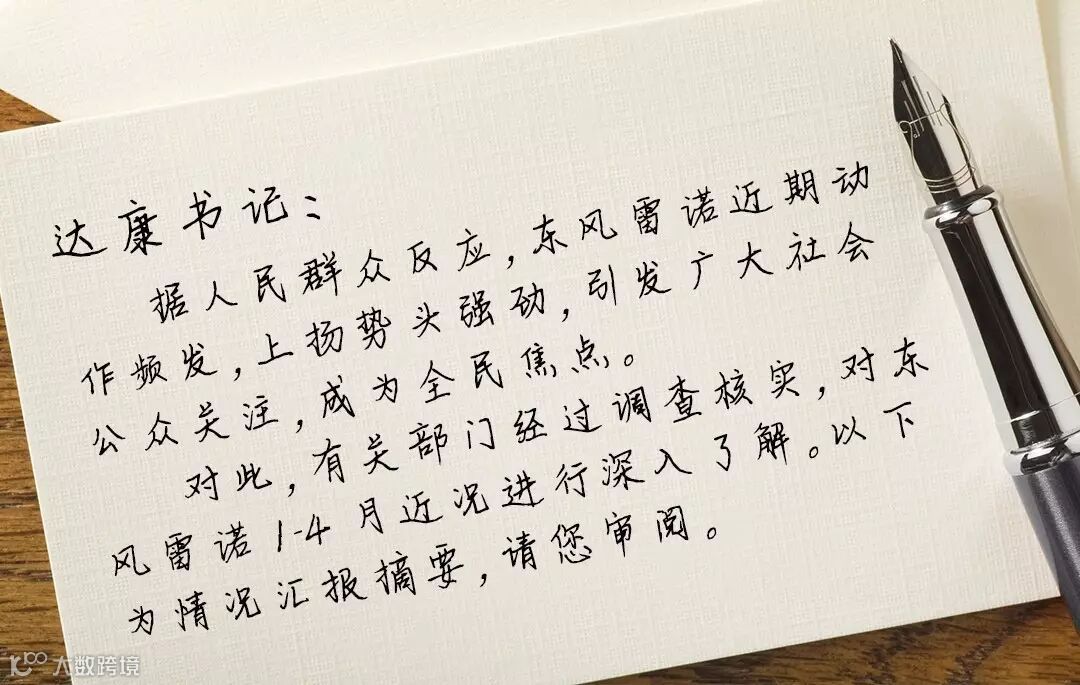 达康书记：
据人民群众反应，东风雷诺近期动
作频发，上扬势头强劲，引发广大社会
公众关注，成为全民焦点。
对此，有关部门经过调查核实，对东
风雷诺1-4月近况进行深入了解。以下
为情况汇报摘要，请您审阅。
大数跨境